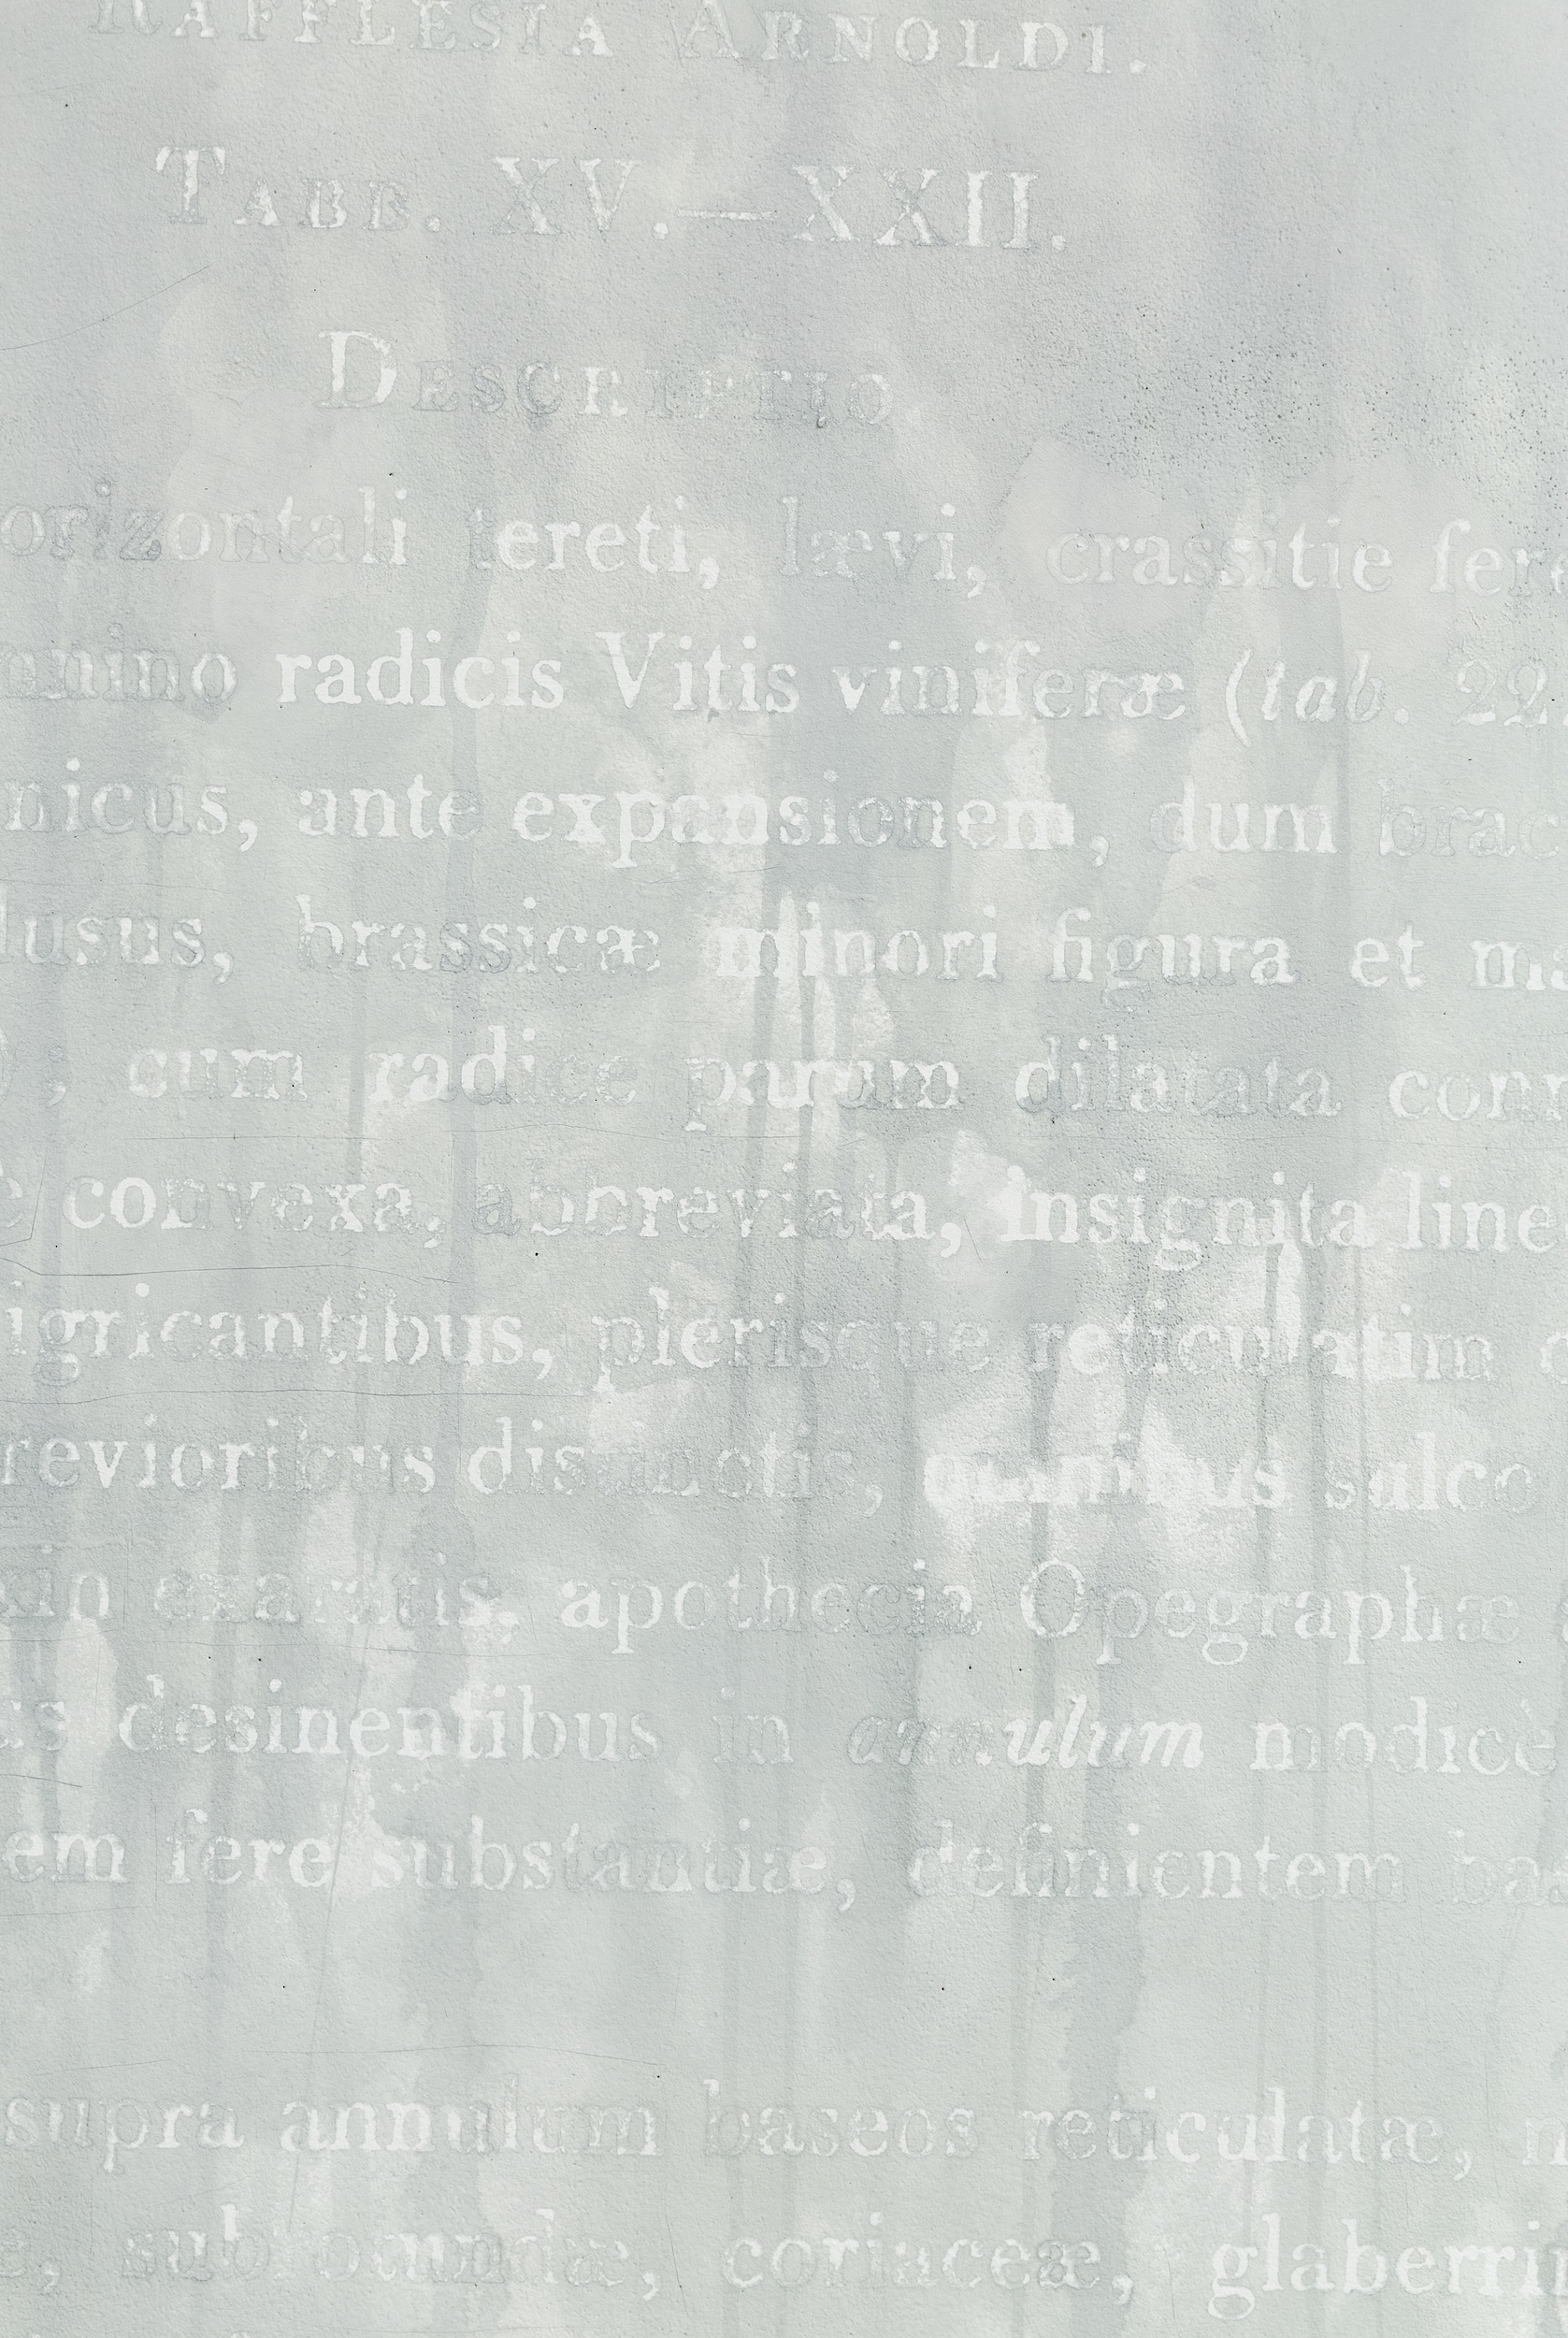 RAFFLESIA ARNOLDI.
TABB. XV.—XXII.
DESCRIPTIO
orizontali tereti, lævi, crassitie fere
radicis Vitis viniferæ (tab. 22.
nicus, ante expansionem, dum brac
lusus, brassicæ minori figura et ma
; cum radice parum dilatata conn
convexa, abbreviata, insignita line
igricantibus, plerisque reticulatim
revioribus distinctis, omnibus sulco
exaratis, apothecia Opegraphæ
us desinentibus in annulum modicè
em fere substantiæ, definientem bas
supra annulum baseos reticulatæ,
subrotundæ, coriaceæ, glaberri